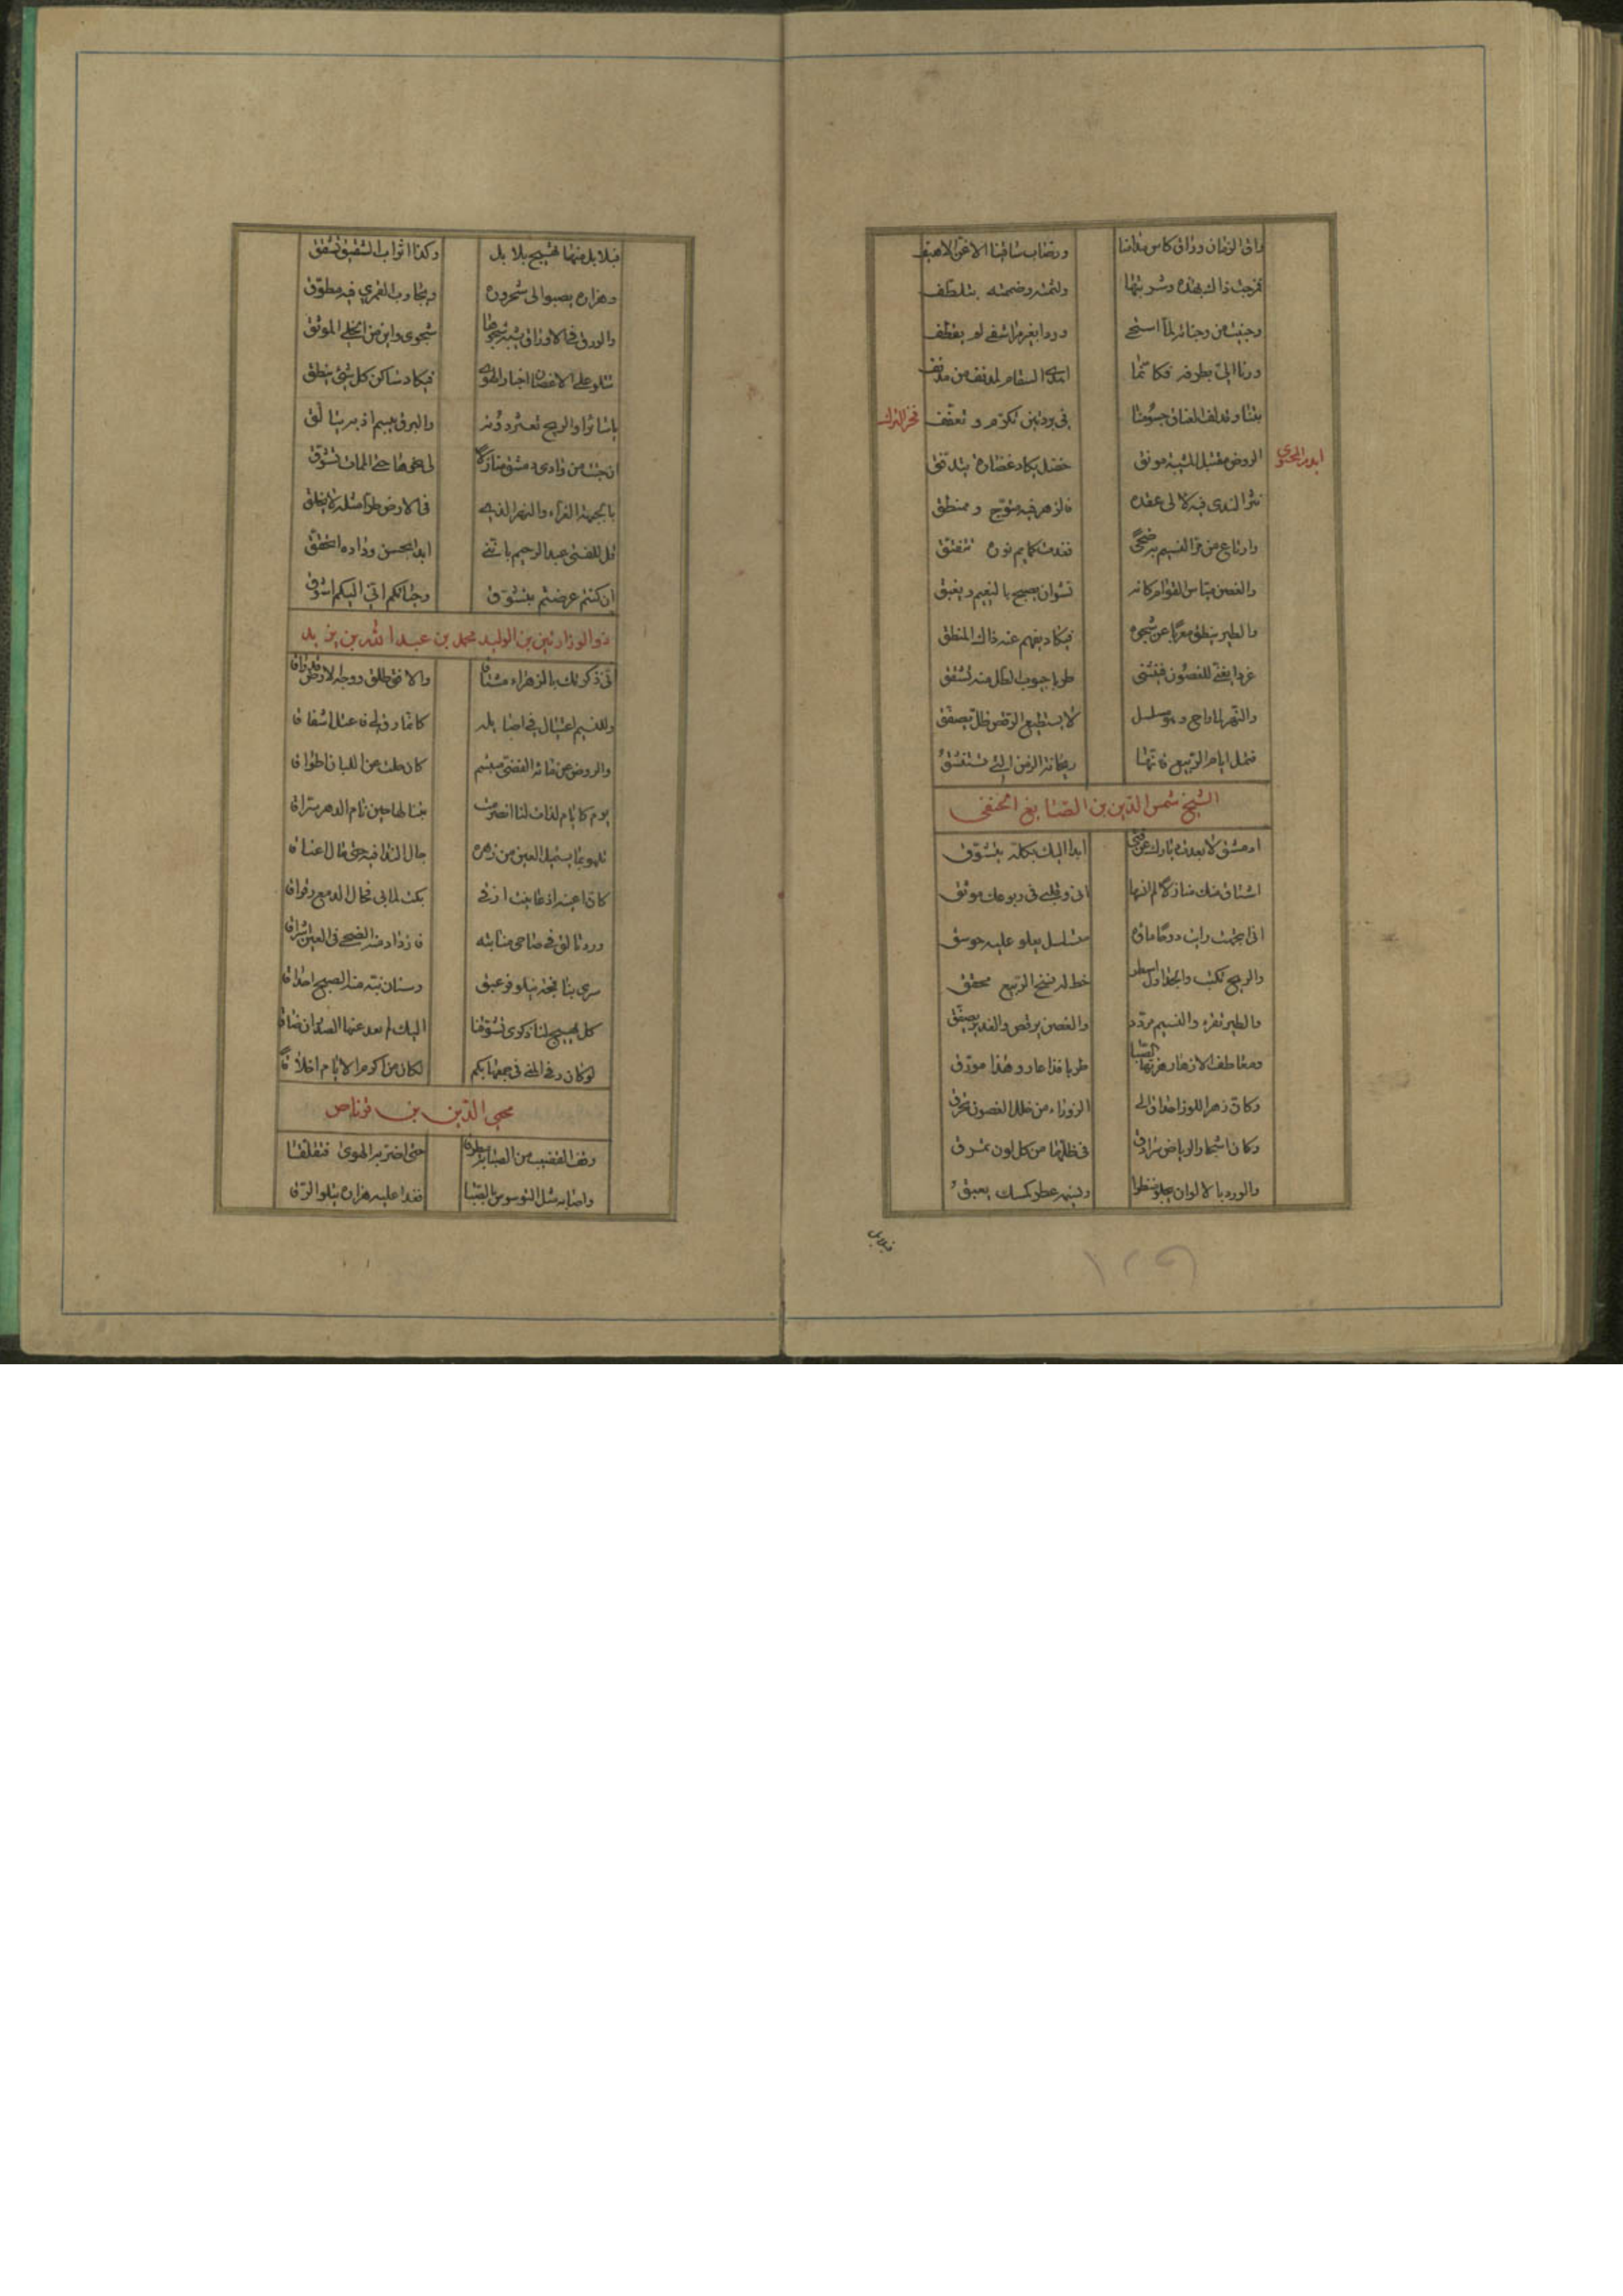 راق الزمان وراق كاس مدامنا
ورضاب ساقينا الاغن الاهيف
فمزجت ذاك بهذه وشربتها
ولثمته وضممته بتلطف
وجنيت من وجناته لما استحى
وردا بغير مراشفى لم يقطف
ورنا الىّ بطرفه فكانما
اهدى السقام لمدنف من مدنف
بتنا وقد لف العناق جسومنا
فى بردتين تكرّم وتعفّف
فخر الترك
الروض مقتبل الشبيبة مونق
خضل يكاد غضارة يتدفق
نثر الندى فيه لالى عقده
فالزهر فيه متوّج و ممنطق
وارتاع من مرّ النسيم به ضحىً
فغدت كمايم نوره تتفتّق
والغصن ميّاس القوام كانه
نشوان يصبح بالنعيم ويغبق
والطير ينطق معربا عن شجوه
فيكاد يفهم عنه ذاك المنطق
غردا يغنّى للغصون فينثنى
طربا جيوب الظل منه تشقق
والنهر لما راح وهو مسلسل
لا يستطيع الرقص ظلّ يصفّق
فتمل ايام الربيع فانّها
ريحانة الزمن التى تستنشقُ
الشيخ شمس الدين بن الصايغ الحنفى
ادمشق لا بعدت ديارك عن فتى
ابدا اليك بكله يتشوّق
اشتاق منك منازلا لم انسها
انى وقلبى فى ربوعك موثق
انى اتجهت رايت دوحا ماؤه
متسلسل يعلو عليه جوسق
والريح تكتب والجداول اسطر
خط له نسخ الربيع محقق
والطير تقرء والنسيم مردّد
والغصن يرقص والغدير يصفّق
ومعاطف الاغصان هزتها الصّبا
طربا فذا عار وهذا مورق
وكان زهر اللوز احداق الى
الزوراء من خلل الغصون تحدق
وكان اشجار الرياض سرادق
فى ظلّها من كل لون نمرق
والورد بالالوان يجلو منظرا
ونسيمه عطر كمسك يعبقُ
فبلابل
فبلابل منها تهيج بلابل
وكذا اثواب الشقيق تشقق
وهزاره يصبو الى شحروره
ويجاوب القمري فيه مطوّق
والورق فى الاوراق يشبه شجوها
شجوى واين من الخلى الموثق
تتلو على الاغصان اخبار الهوى
فيكاد ساكن كل شئ ينطق
يا سائرا والريح تعثر دونه
والبرق يبسم اذ به يتالّق
ان جئت من وادى دمشق منازلا
لى نحوها حتى الممات تشوّق
بالجبهة الغرّاء والنهر الذى
فى الارض طرا مثله لا يخلق
قل للفتى عبد الرحيم باننى
ابدا بحسن وداده اتحقق
ان كنتم عرضتم بتشوّق
وحياتكم انى اليكم اشوق
ذو الوزارتين بن الوليد محمد بن عبد الله بن زيد
انى ذكرتك بالزهراء مشتاقا
والافق طلق ووجه الارض قد راقا
وللنسيم اعتلال فى اصايله
كانما رق لى فاعتل اشفاقا
والروض عن مائه الفضى مبتسم
كان حللت عن اللبات اطواقا
يوم كايام لذات لنا انصرمت
بتنا لها حين نام الدهر سراقا
نلهو بما يستميل العين من زهر
جال الندا فيه حتى مال اعناقا
كان اعينه اذ عاينت ارقى
بكت لما بى فجال الدمع رقراقا
ورد تالق فى ضاحى منابته
فازداد منه الضحى فى العين اشراقا
سرى ينافحه نيلوفر عبق
وسنان نبّه منه الصبح احداقا
كل يهيج لنا ذكرى تشوقنا
اليك لم يعد عنها الصدر ان ضاقا
لو كان وفى المنى فى جمعنا بكم
لكان من اكرم الايام اخلاقا
محيى الدين بن قرناص
حتى اضرّ به الهوى فتقلّقا
فغدا عليه هزاره يتلو الرّقا